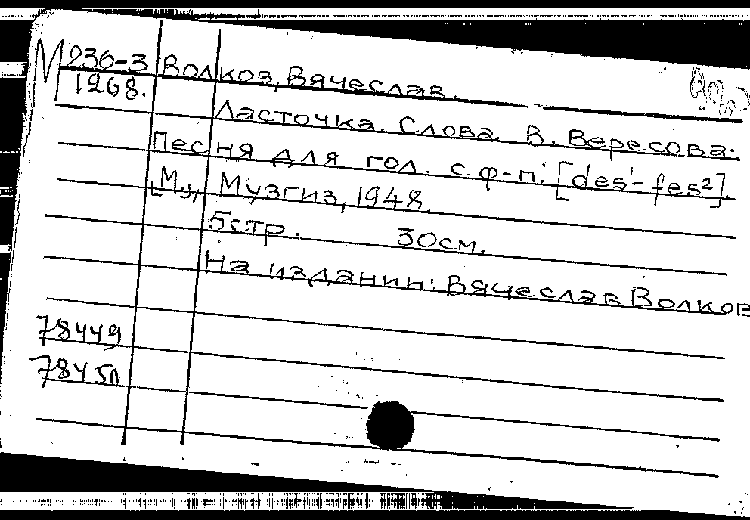 М 236-3 Волков, Вячеслав.
1268.
Ласточка. Слова В. Вересова.
Песня для гол. с ф-п. [des¹-fes²].
[М.], Музгиз, 1948.
5 стр. 30 см.
На издании: Вячеслав Волков
78449
78450